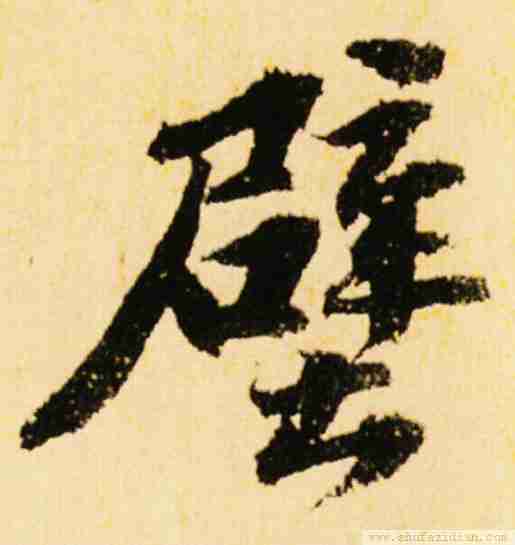 壁
www.shufazidian.com